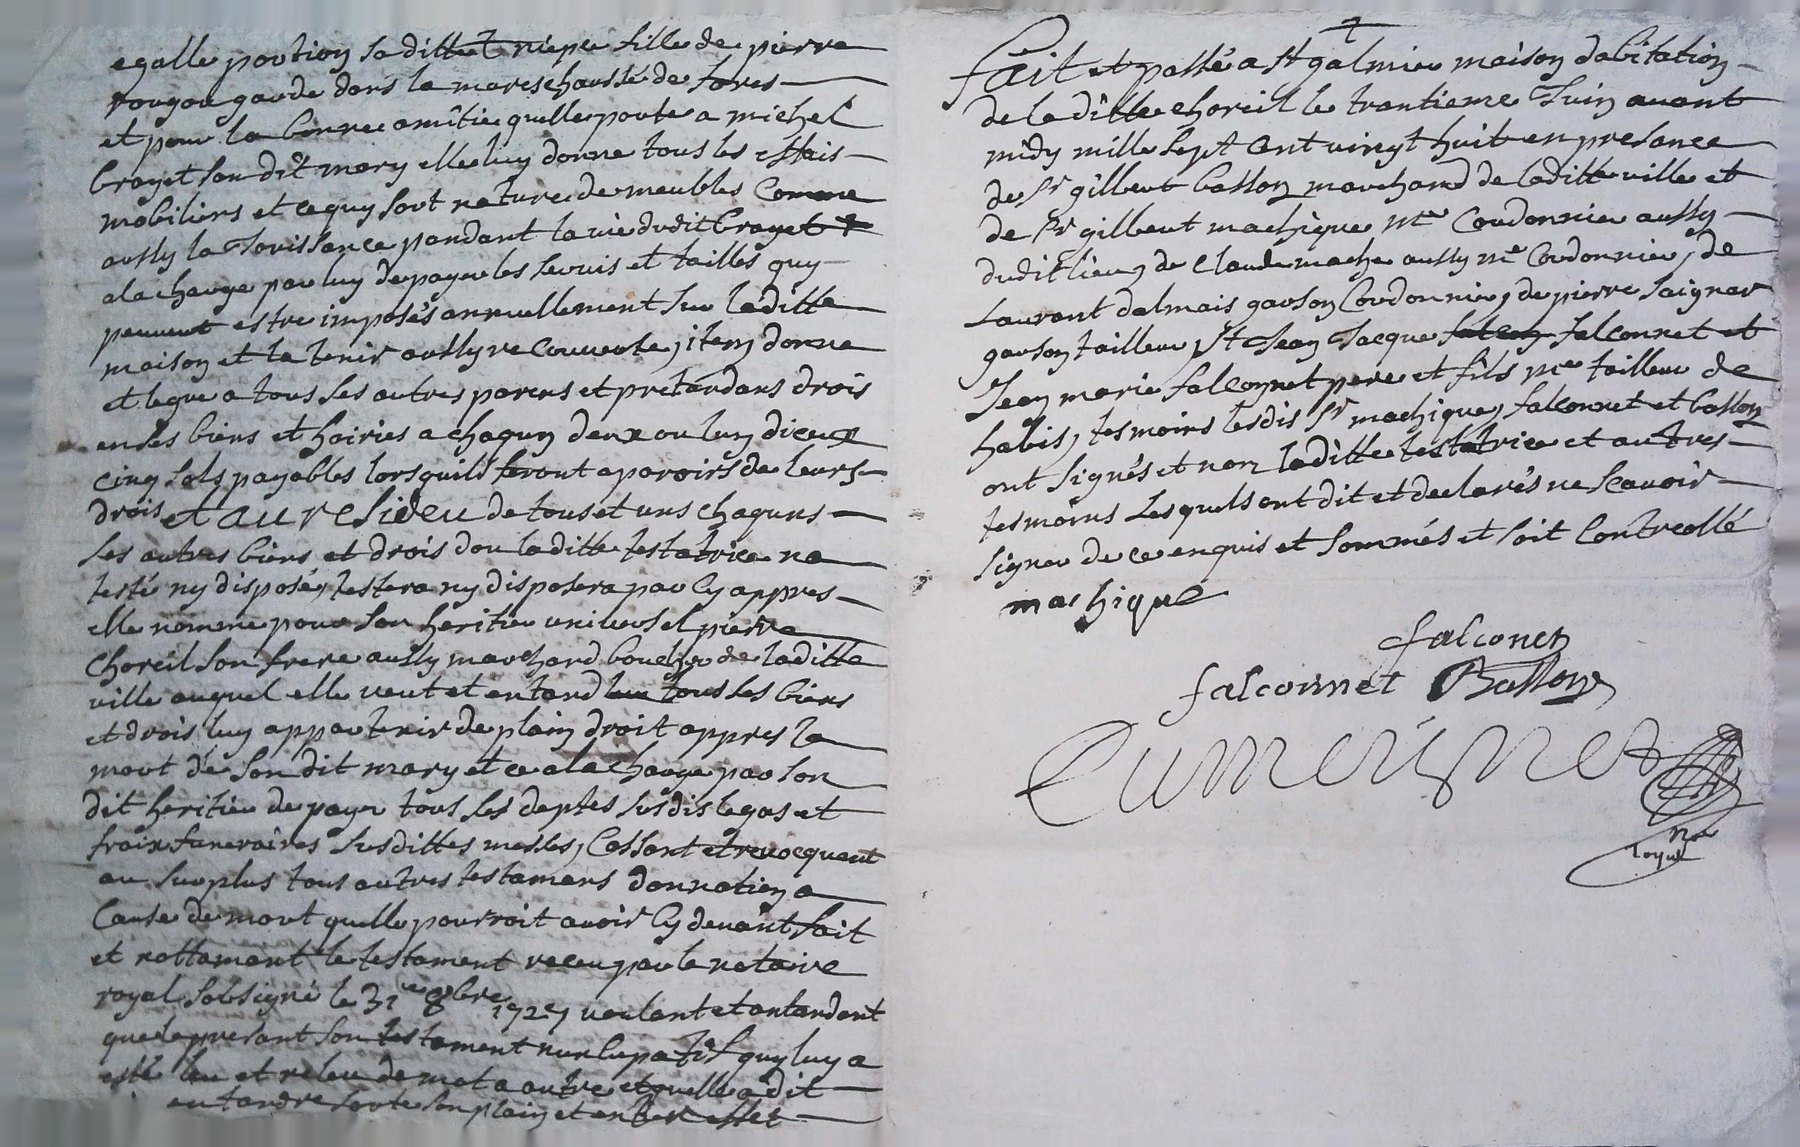 egalle portion sa ditte niepce fille de pierre
rougou garde dans la mareschaussée de fores
et pour la bonne amitie quelle porte a michel
brayet son dit mary elle luy donne tous les effais
mobiliers et ce quy sort nature de meubles comme
aussy la Jouissance pandant la vie dudit brayet
a la charge par luy de payer les servis et tailles quy
peuvent estre imposés annuellement sur laditte
maison et la tenir aussy recouverte, item donne
et legue a tous ses autres parens et pretandans drois
en ses biens et hoiries a chaqun deux ou lun diceux
cinq sols payables lorsquils feront aparoirs de leurs
drois et au resideu de tous et uns chaquns
ses autres biens et drois dou laditte testatrice na
testé ny disposé, testera ny disposera par cy appres
elle nomme pour son heritier universel pierre
Choreil son frere aussy marchand boucher de laditte
ville auquel elle veut et entand tous ses biens
et drois luy appartenir de plain droit appres la
mort de son dit mary et ce a la charge par son
dit heritier de payer tous ses deptes susdis legas et
fraix funeraires susdittes messes, Cassant et revocquant
au surplus tous autres testamens donnation a
Cause de mort quelle pourroit avoir cy devant fait
et nottament le testament receu par le notaire
royal sobsigné le 31e 8bre 1727 voulant et antandant
que le presant son testament quy luy a
esté leu et releu de mot a autre et quelle a dit
antandre sorte son plain et antier effet
fait et passé a st galmier maison dabitation
de la ditte choreil le trantieme Juin avant
midy mille sept cent vingt huit en presance
de sr gilbert basson marchand de laditte ville et
de sr gilbert machique me Cordonnier aussy
dudit lieu, de Claude mache aussy me Cordonnier, de
Laurant dalmais garson Cordonnier, de pierre saignar
garson tailleur, st Jean Jacque falconnet et
Jean marie falconnet pere et fils me tailleur de
habis, tesmoins lesdis sr machique, falconnet et basson
ont signés et non laditte testatrice et autres
tesmoins lesquels ont dit et declarés ne scavoir
signer de ce enquis et sommés et soit Contreollé
machique
falconet
falconnet Basson
Cumerinet
nre
royal